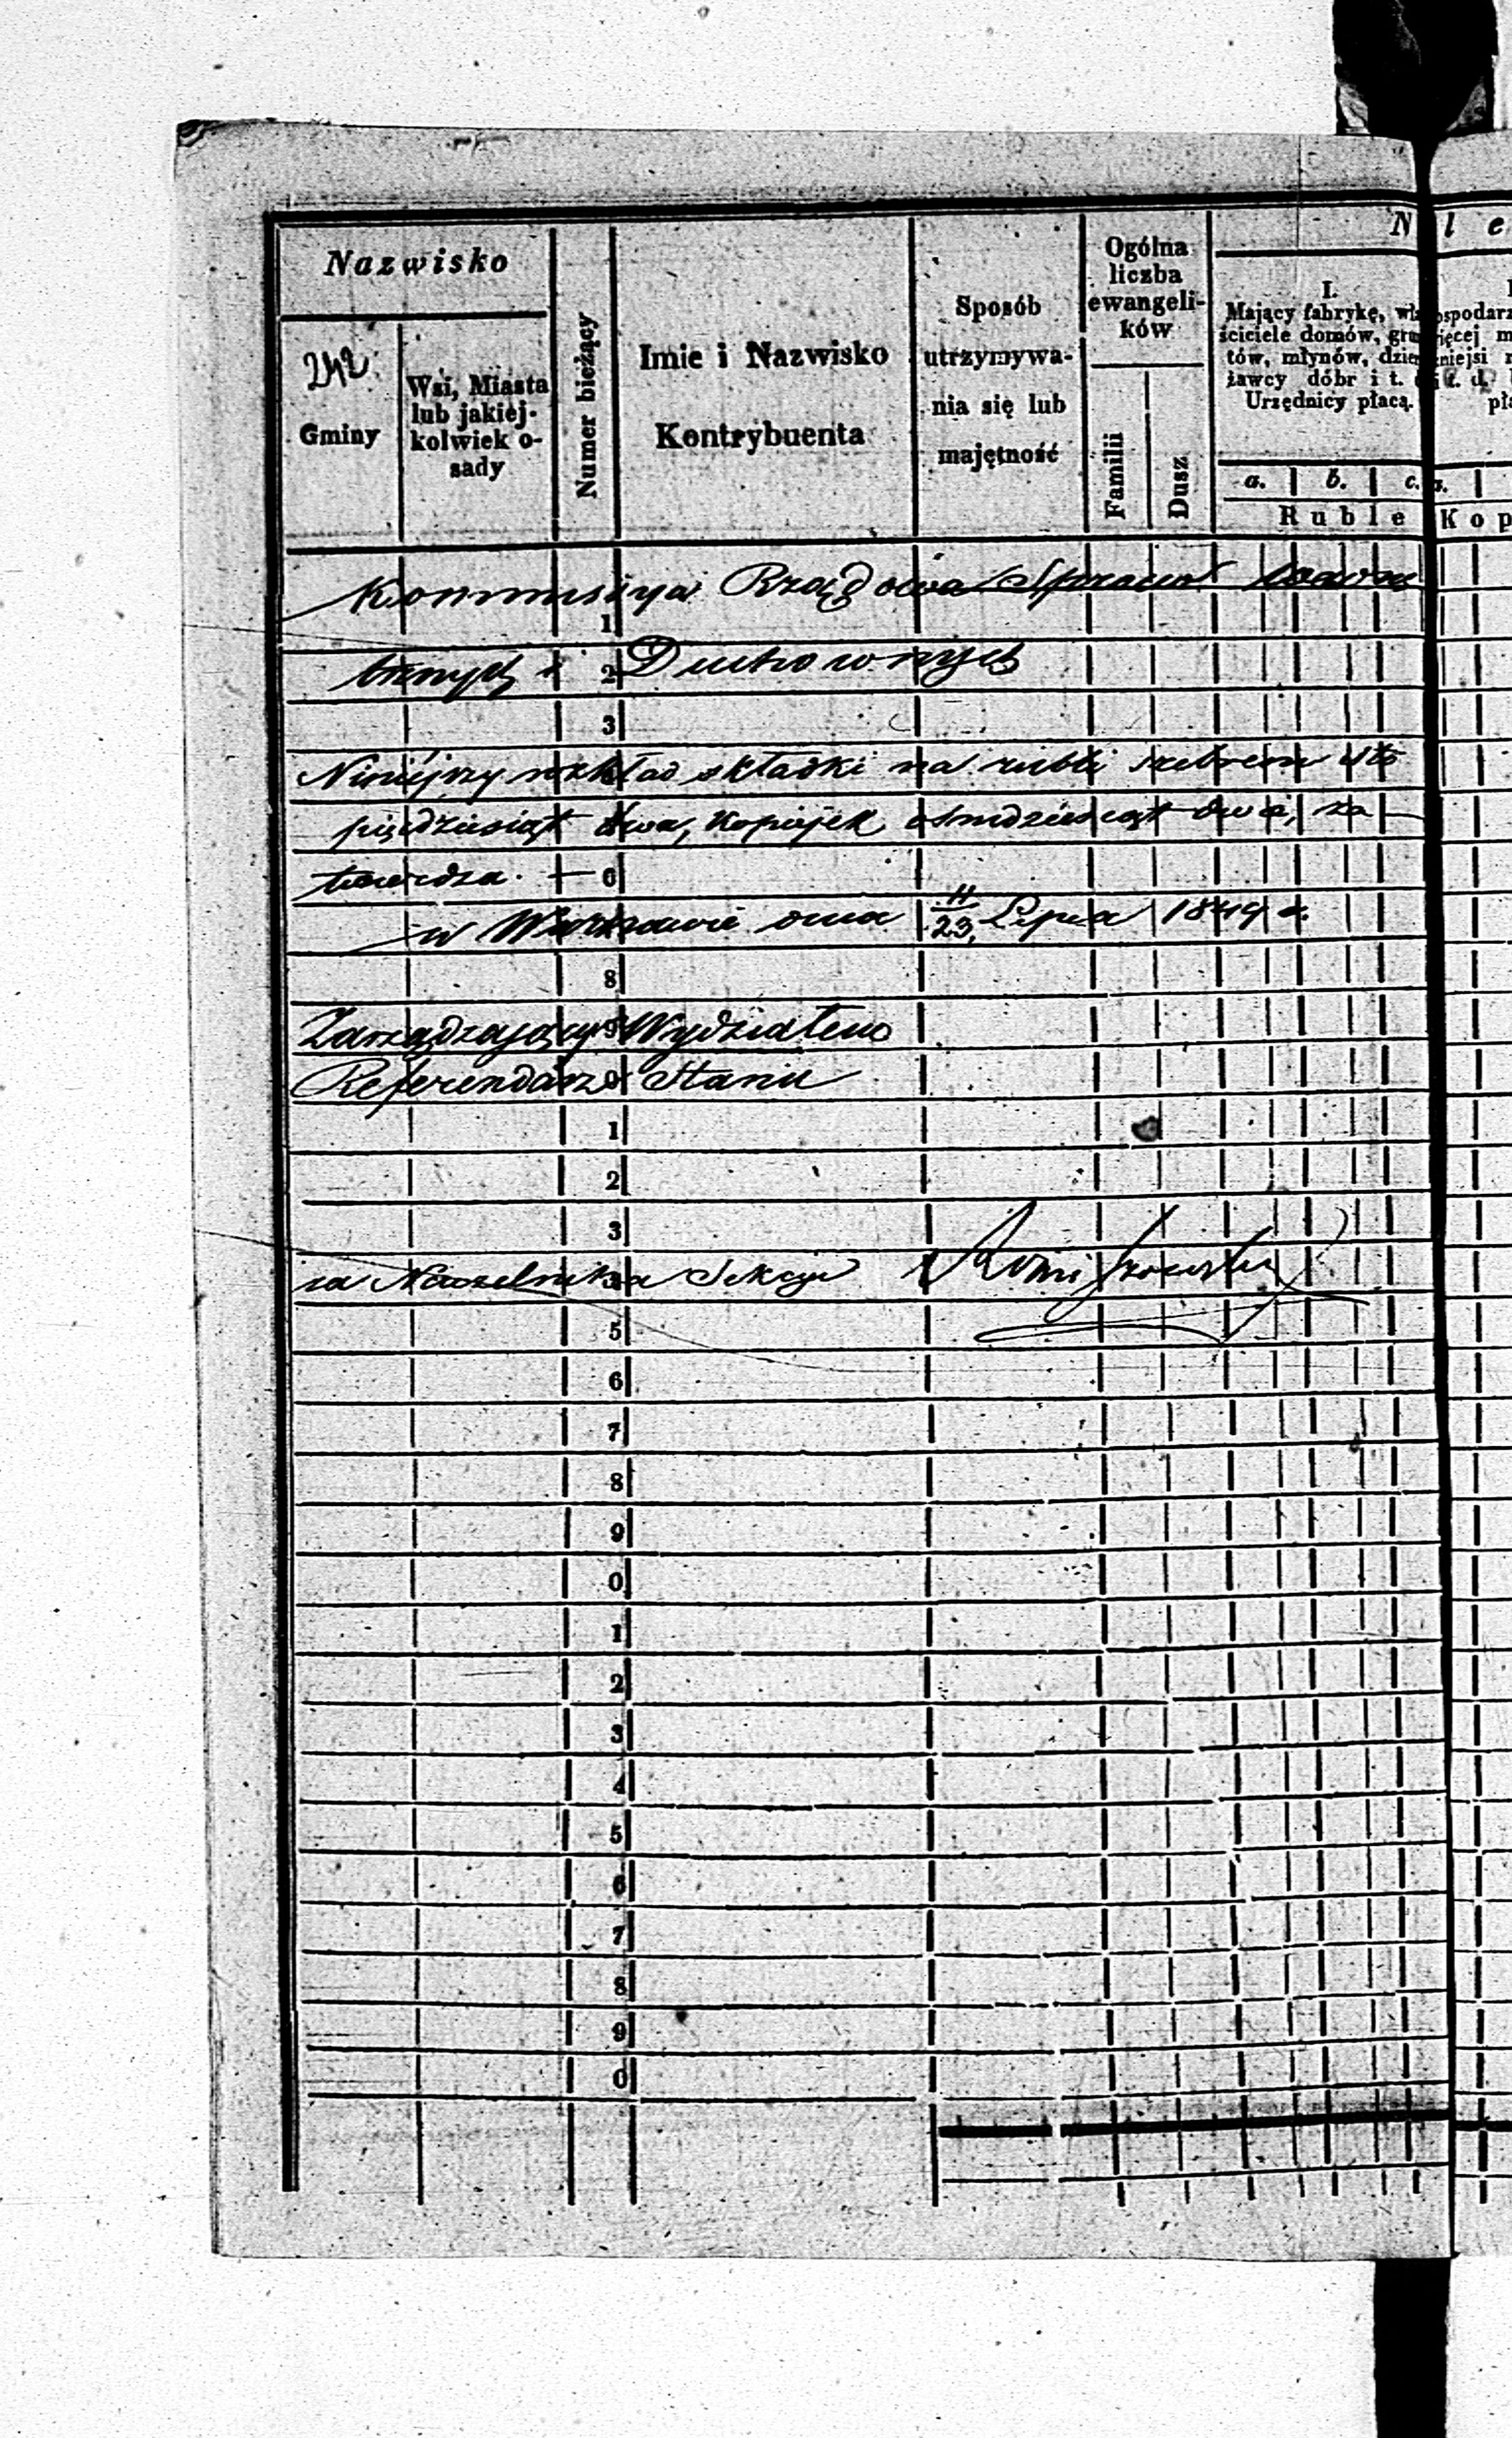 Nazwisko
242.
Gminy
Wsi, Miasta
lub jakiej-
kolwiek o-
sady
Numer bieżący
Imie i Nazwisko
Kontrybuenta
Sposób
utrzymywa-
nia się lub
majętność
Ogólna
liczba
ewangeli-
ków
Familii
Dusz
N l e
I.
Mający fabrykę, wła
ściciele domów, grun
tów, młynów, dzier
żawcy dóbr i t. d.
Urzędnicy płacą.
a. b. c.
Ruble Kop
Kommissya Rządowa Spraw Wewnę
trznych i Duchownych
Niniejszy rozkład składki na rubli srebrem sto
pięćdziesiąt dwa, kopiejek ośmdziesiąt dwie, za-
twierdza.
w Warszawie dnia 11/23 Lipca 1849 r.
Zarządzający Wydziałem
Referendarz Stanu
za Naczelnika Sekcyi
1
2
3
6
8
9
0
1
2
3
5
6
7
8
9
0
1
2
3
4
5
6
7
8
9
0